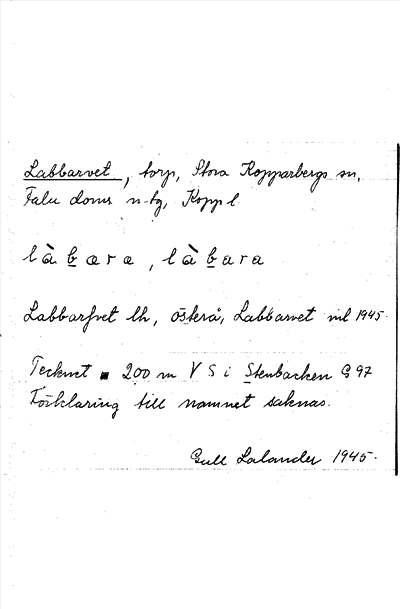 Labbarvet, torp, Stora Kopparbergs sn,
Falu doms n-tg, Kopp l.
là b̲ a r a, là b̲ a r a
Labbarfvet lh, österå, Labbarvet ml 1945.
Tecknet ■ 200 m V S i Stenbacken G 97
Förklaring till namnet saknas.
Gull Lalander 1945.